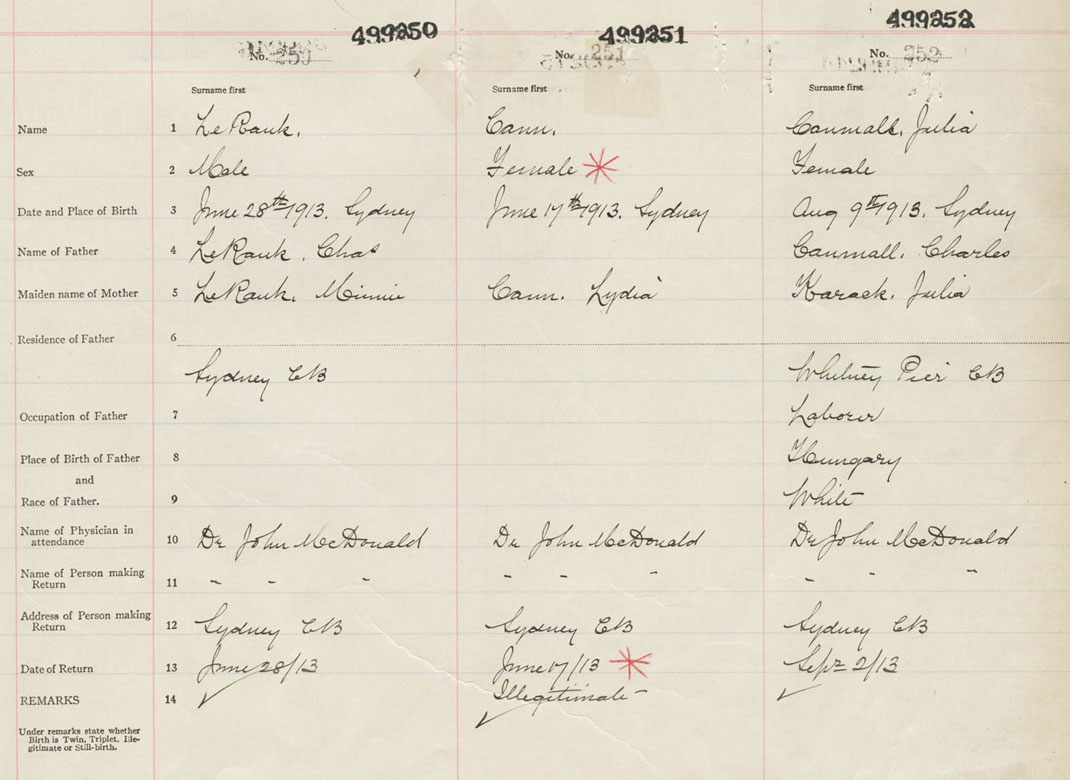 499250 499251 499252
No. 250 No. 251 No. 252
Surname first Surname first Surname first
Name 1 LeRauk. Cann. Canmall, Julia
Sex 2 Male Female Female
Date and Place of Birth 3 June 28th 1913. Sydney June 17th 1913. Sydney Aug 9th 1913. Sydney
Name of Father 4 LeRauk, Chas Canmall. Charles
Maiden name of Mother 5 LeRauk, Minnie Cann. Lydia Karack. Julia
Residence of Father 6
Sydney CB Whitney Pier CB
Occupation of Father 7 Laborer
Place of Birth of Father 8 Hungary
and
Race of Father. 9 White
Name of Physician in
attendance 10 Dr John McDonald Dr John McDonald Dr John McDonald
Name of Person making
Return 11 " " " " " " " " "
Address of Person making
Return 12 Sydney CB Sydney CB Sydney CB
Date of Return 13 June 28/13 June 17/13 Sept 2/13
REMARKS 14 Illegitimate
Under remarks state whether
Birth is Twin, Triplet, Ille-
gitimate or Still-birth.